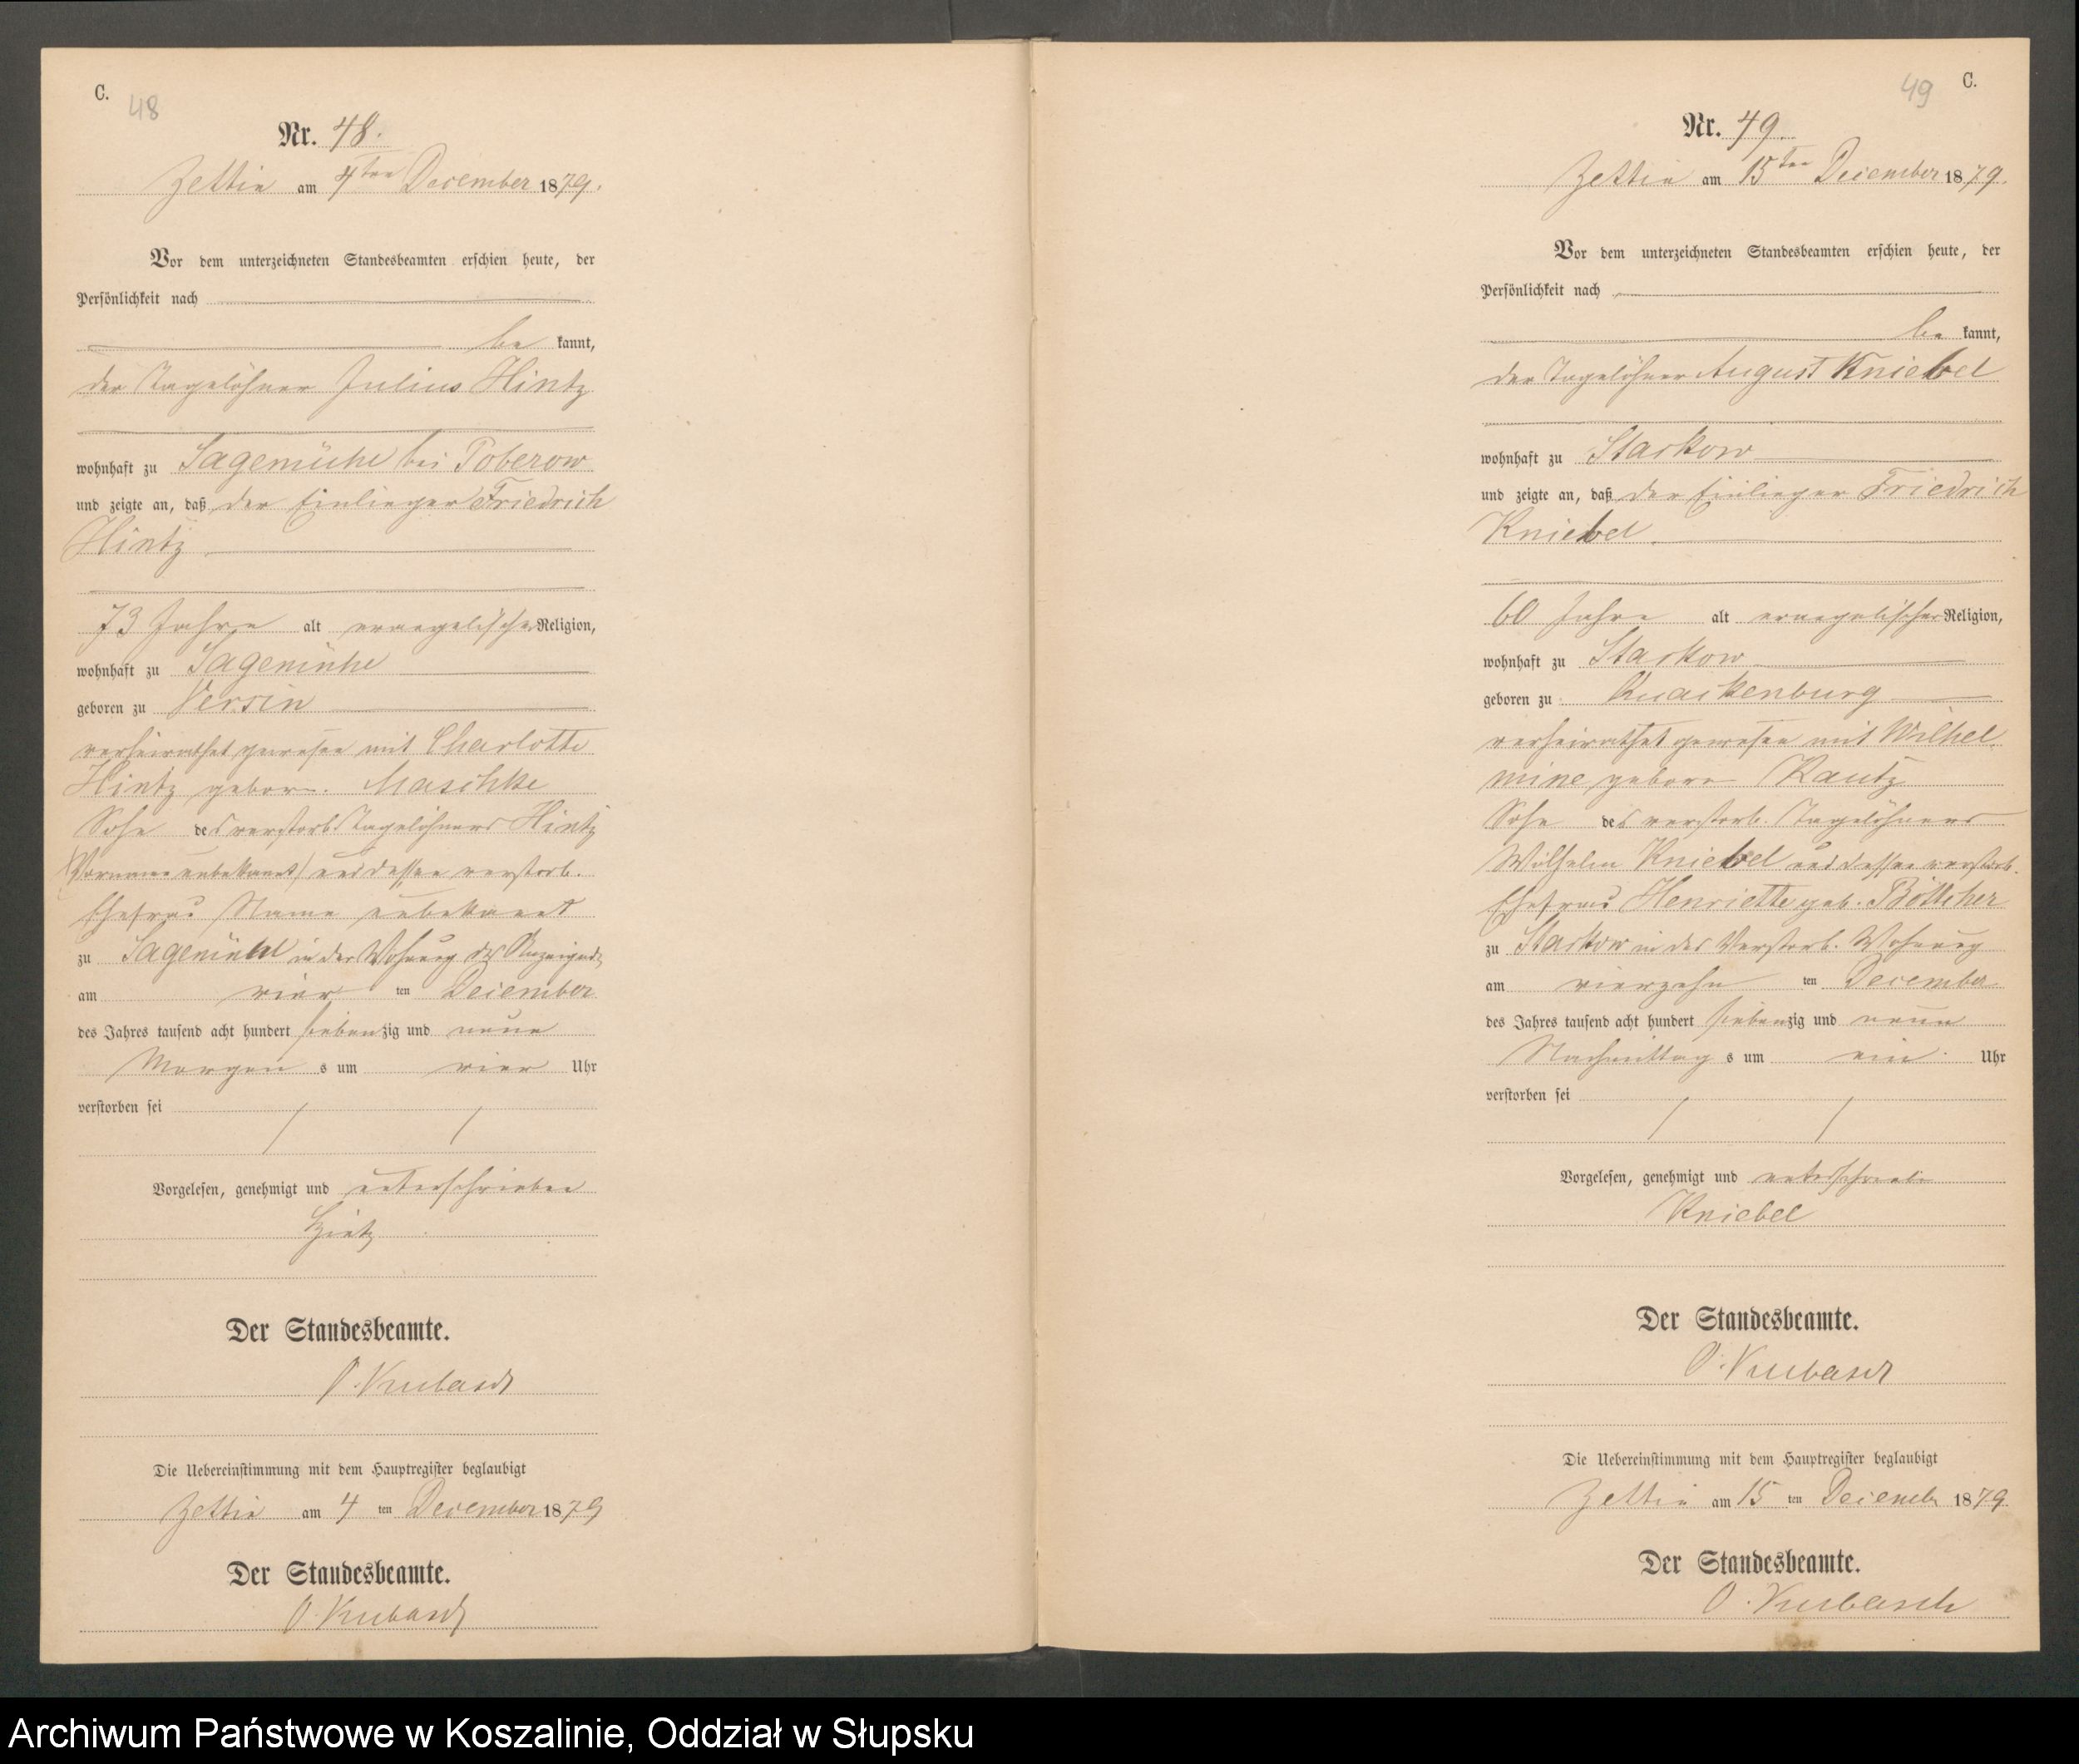 C.
48
Nr. 48.
Zettin am 4ten December 1879.
Vor dem unterzeichneten Standesbeamten erschien heute, der
Persönlichkeit nach
be kannt,
der Tagelöhner Julius Hintz
wohnhaft zu Sagemühe bei Poberow
und zeigte an, daß der Einlieger Friedrich
Hintz
73 Jahre alt evangelischer Religion,
wohnhaft zu Sagemühe
geboren zu Versin
verheirathet gewesen mit Charlotte
Hintz geborn. Maschke
Sohn des verstorb. Tagelöhners Hintz
(Vorname unbekannt) und dessen verstorb.
Ehefrau Name unbekannt
zu Sagemühl in der Wohnung des
am vier ten December
des Jahres tausend acht hundert siebenzig und neun
Morgen s um vier Uhr
verstorben sei
Vorgelesen, genehmigt und unterschrieben
Hintz
Der Standesbeamte.
O. Kubasch
Die Uebereinstimmung mit dem Hauptregister beglaubigt
Zettin am 4 ten December 1879
Der Standesbeamte.
O. Kubasch
49
C.
Nr. 49.
Zettin am 15ten December 1879.
Vor dem unterzeichneten Standesbeamten erschien heute, der
Persönlichkeit nach
be kannt,
der Tagelöhner August Kniebel
wohnhaft zu Starkow
und zeigte an, daß der Einlieger Friedrich
Kniebel.
60 Jahre alt evangelischer Religion,
wohnhaft zu Starkow
geboren zu Quackenburg
verheirathet gewesen mit Wilhel
mine geborn Kautz
Sohn des verstorb. Tagelöhners
Wilhelm Kniebel und dessen verstorb.
Ehefrau Henriette geb. Böttcher
zu Starkow in des Verstorb. Wohnung
am vierzehn ten December
des Jahres tausend acht hundert siebenzig und neun
Nachmittag s um ein Uhr
verstorben sei
Vorgelesen, genehmigt und
Kniebel
Der Standesbeamte.
O. Kubasch
Die Uebereinstimmung mit dem Hauptregister beglaubigt
Zettin am 15 ten Decemb 1879.
Der Standesbeamte.
O. Kubasch
Archiwum Państwowe w Koszalinie, Oddział w Słupsku